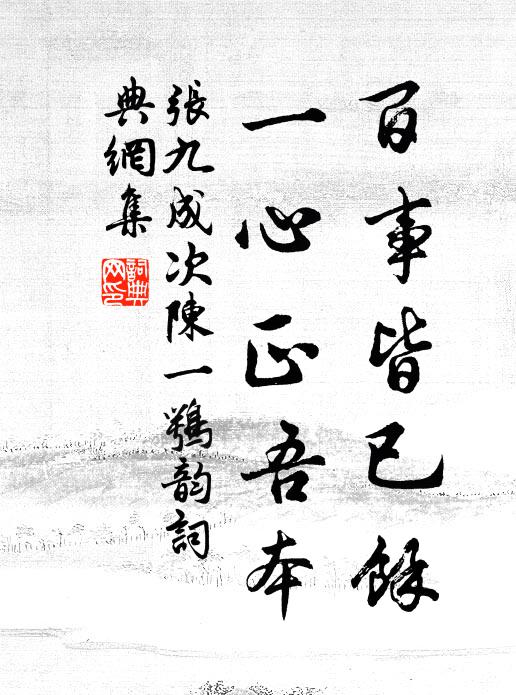 百事皆已餘
一心正吾本
張九成次陳一鶚韵詞
典網集
詞典
网印